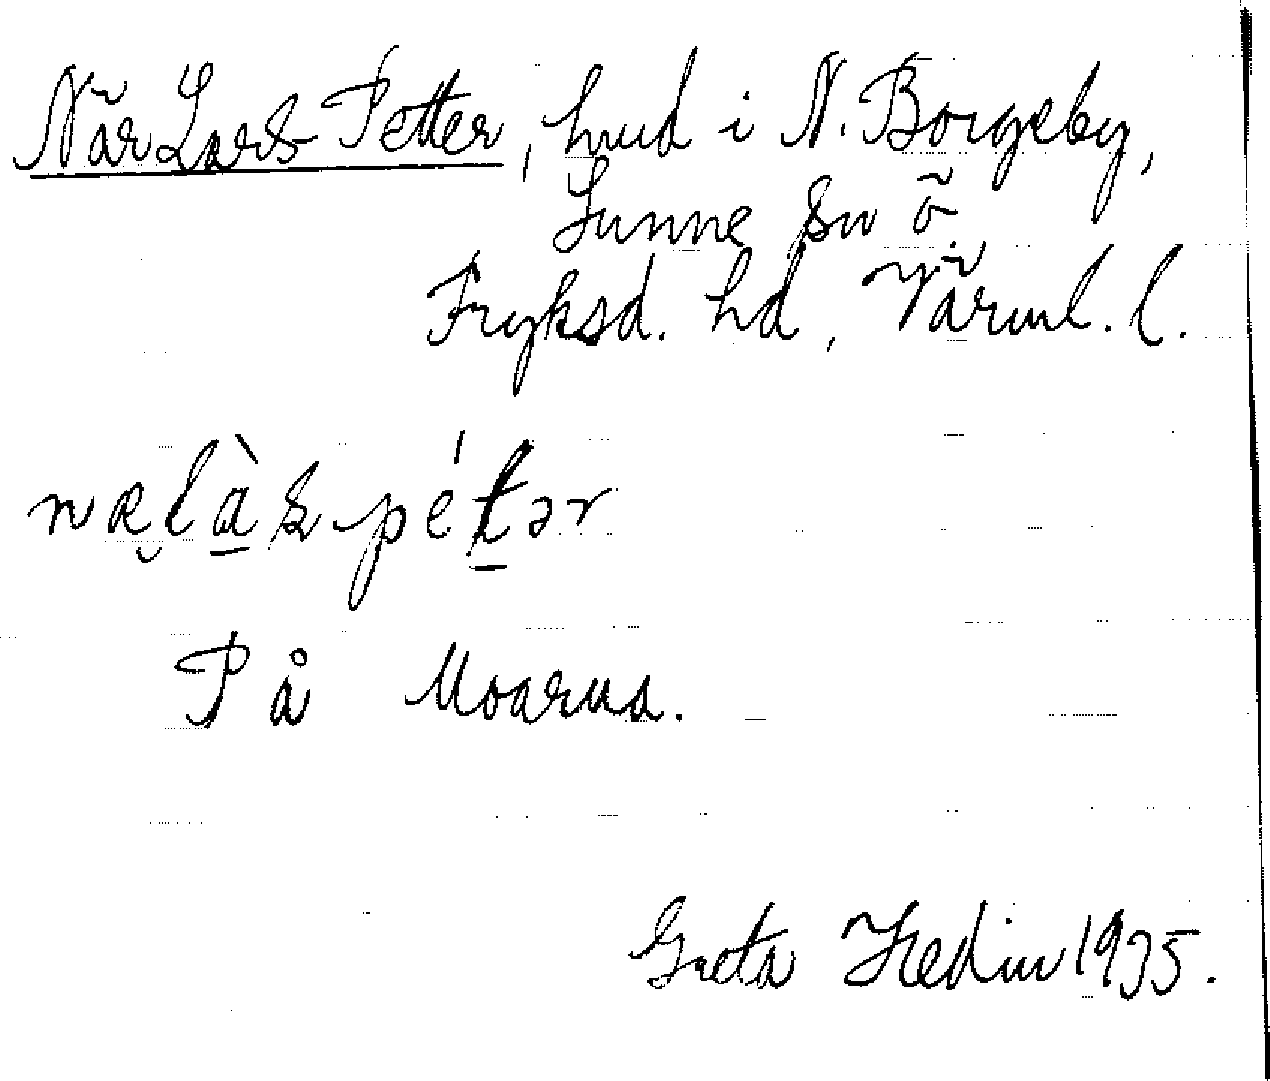 När Lars Petter, hmd i N. Borgeby,
Sunne sn ö
Fryksd. hd, Värml. l.
næ̮là̱s pét̲ər
På Moarna.
Greta Hedin 1935.